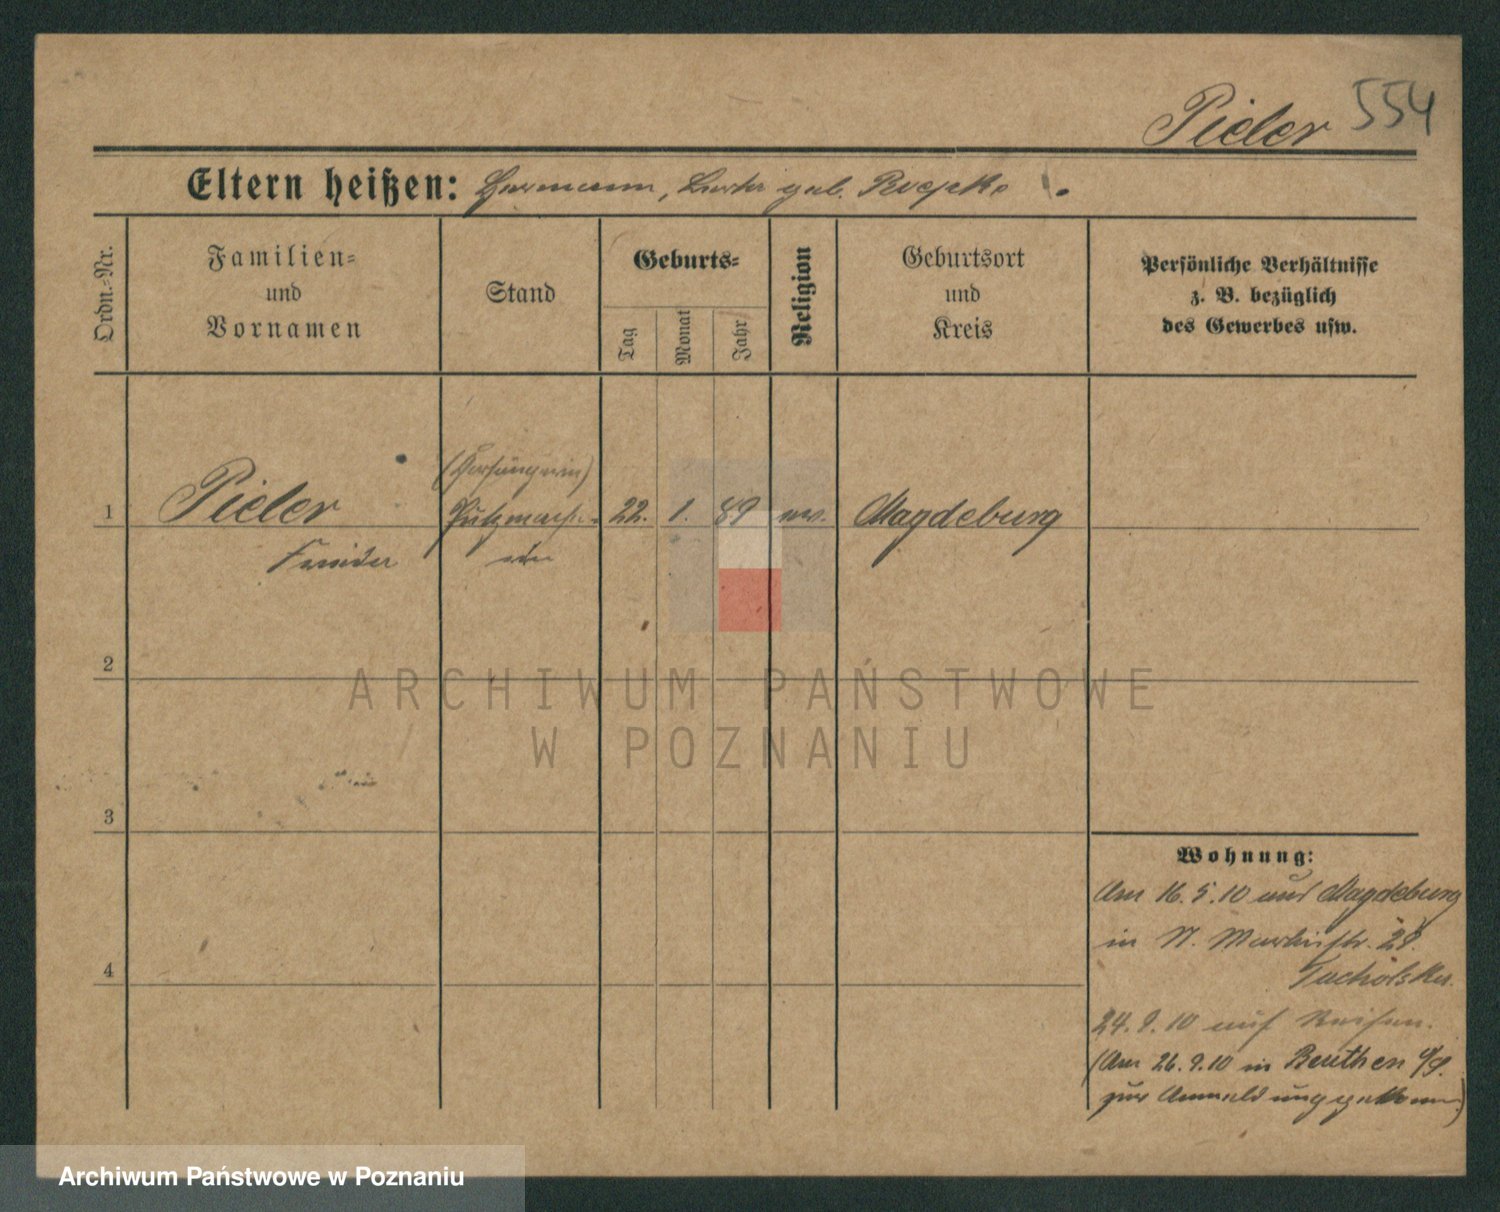 Pieler 554
Eltern heißen: Hermann, geb.
Ordn.-Nr.
Familien-
und
Vornamen
Stand
Geburts-
Tag
Monat
Jahr
Religion
Geburtsort
und
Kreis
Persönliche Verhältnisse
z. B. bezüglich
des Gewerbes usw.
1 Pieler 22. 1. 89 ev. Magdeburg
2
3
4
Wohnung:
Am 16.5.10 aus Magdeburg
in St. Martinstr. 28.
24.9.10 auf Reisen.
(Am 26.9.10 in Beuthen o/S.
zur Anmeldung gekomm.)
ARCHIWUM PAŃSTWOWE
W POZNANIU
Archiwum Państwowe w Poznaniu